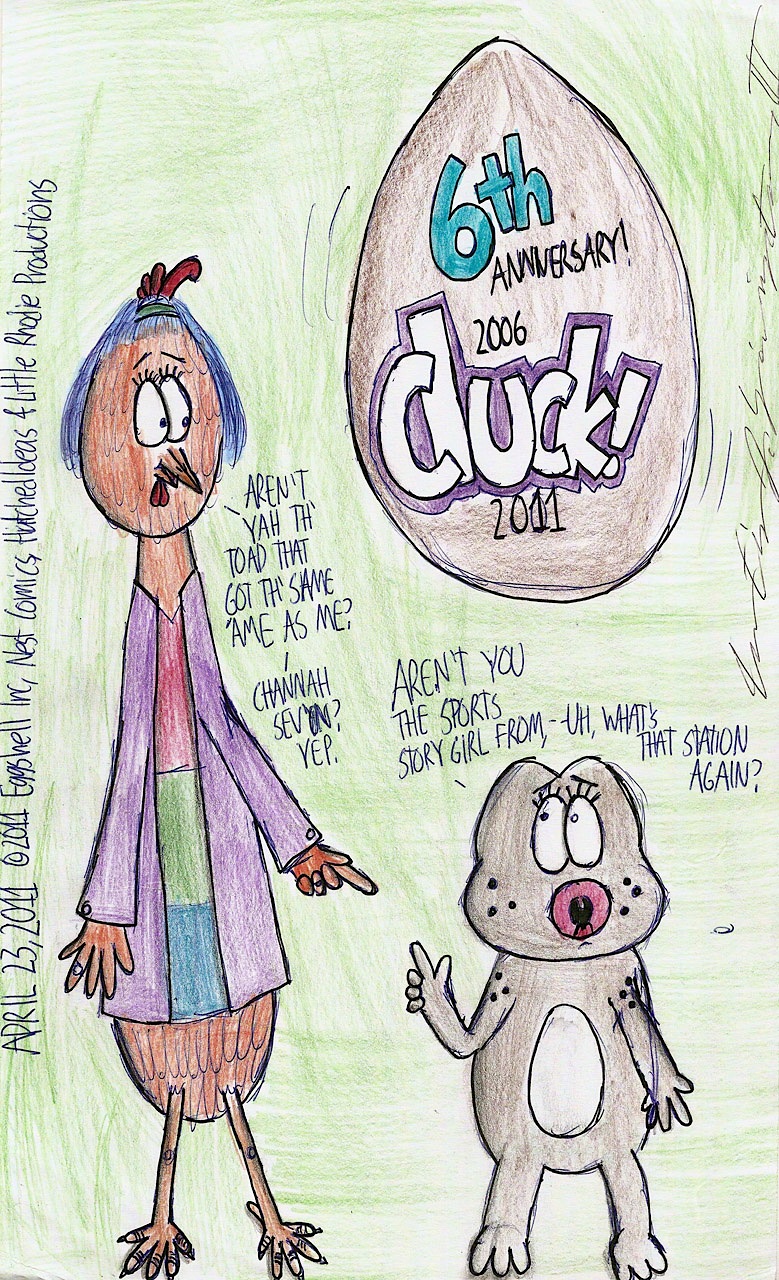 6th
ANNVERSARY!
2006
cluck!
2011
AREN'T
YAH TH'
TOAD THAT
GOT TH' SAME
'AME AS ME?
CHANNAH
SEVYN?
YEP.
AREN'T YOU
THE SPORTS
STORY GIRL FROM, --UH, WHAT'S
THAT STATION
AGAIN?
APRIL 23, 2011 ©2011 Eggshell Inc, Nest Comics, HatchedIdeas & Little Rhodie Productions